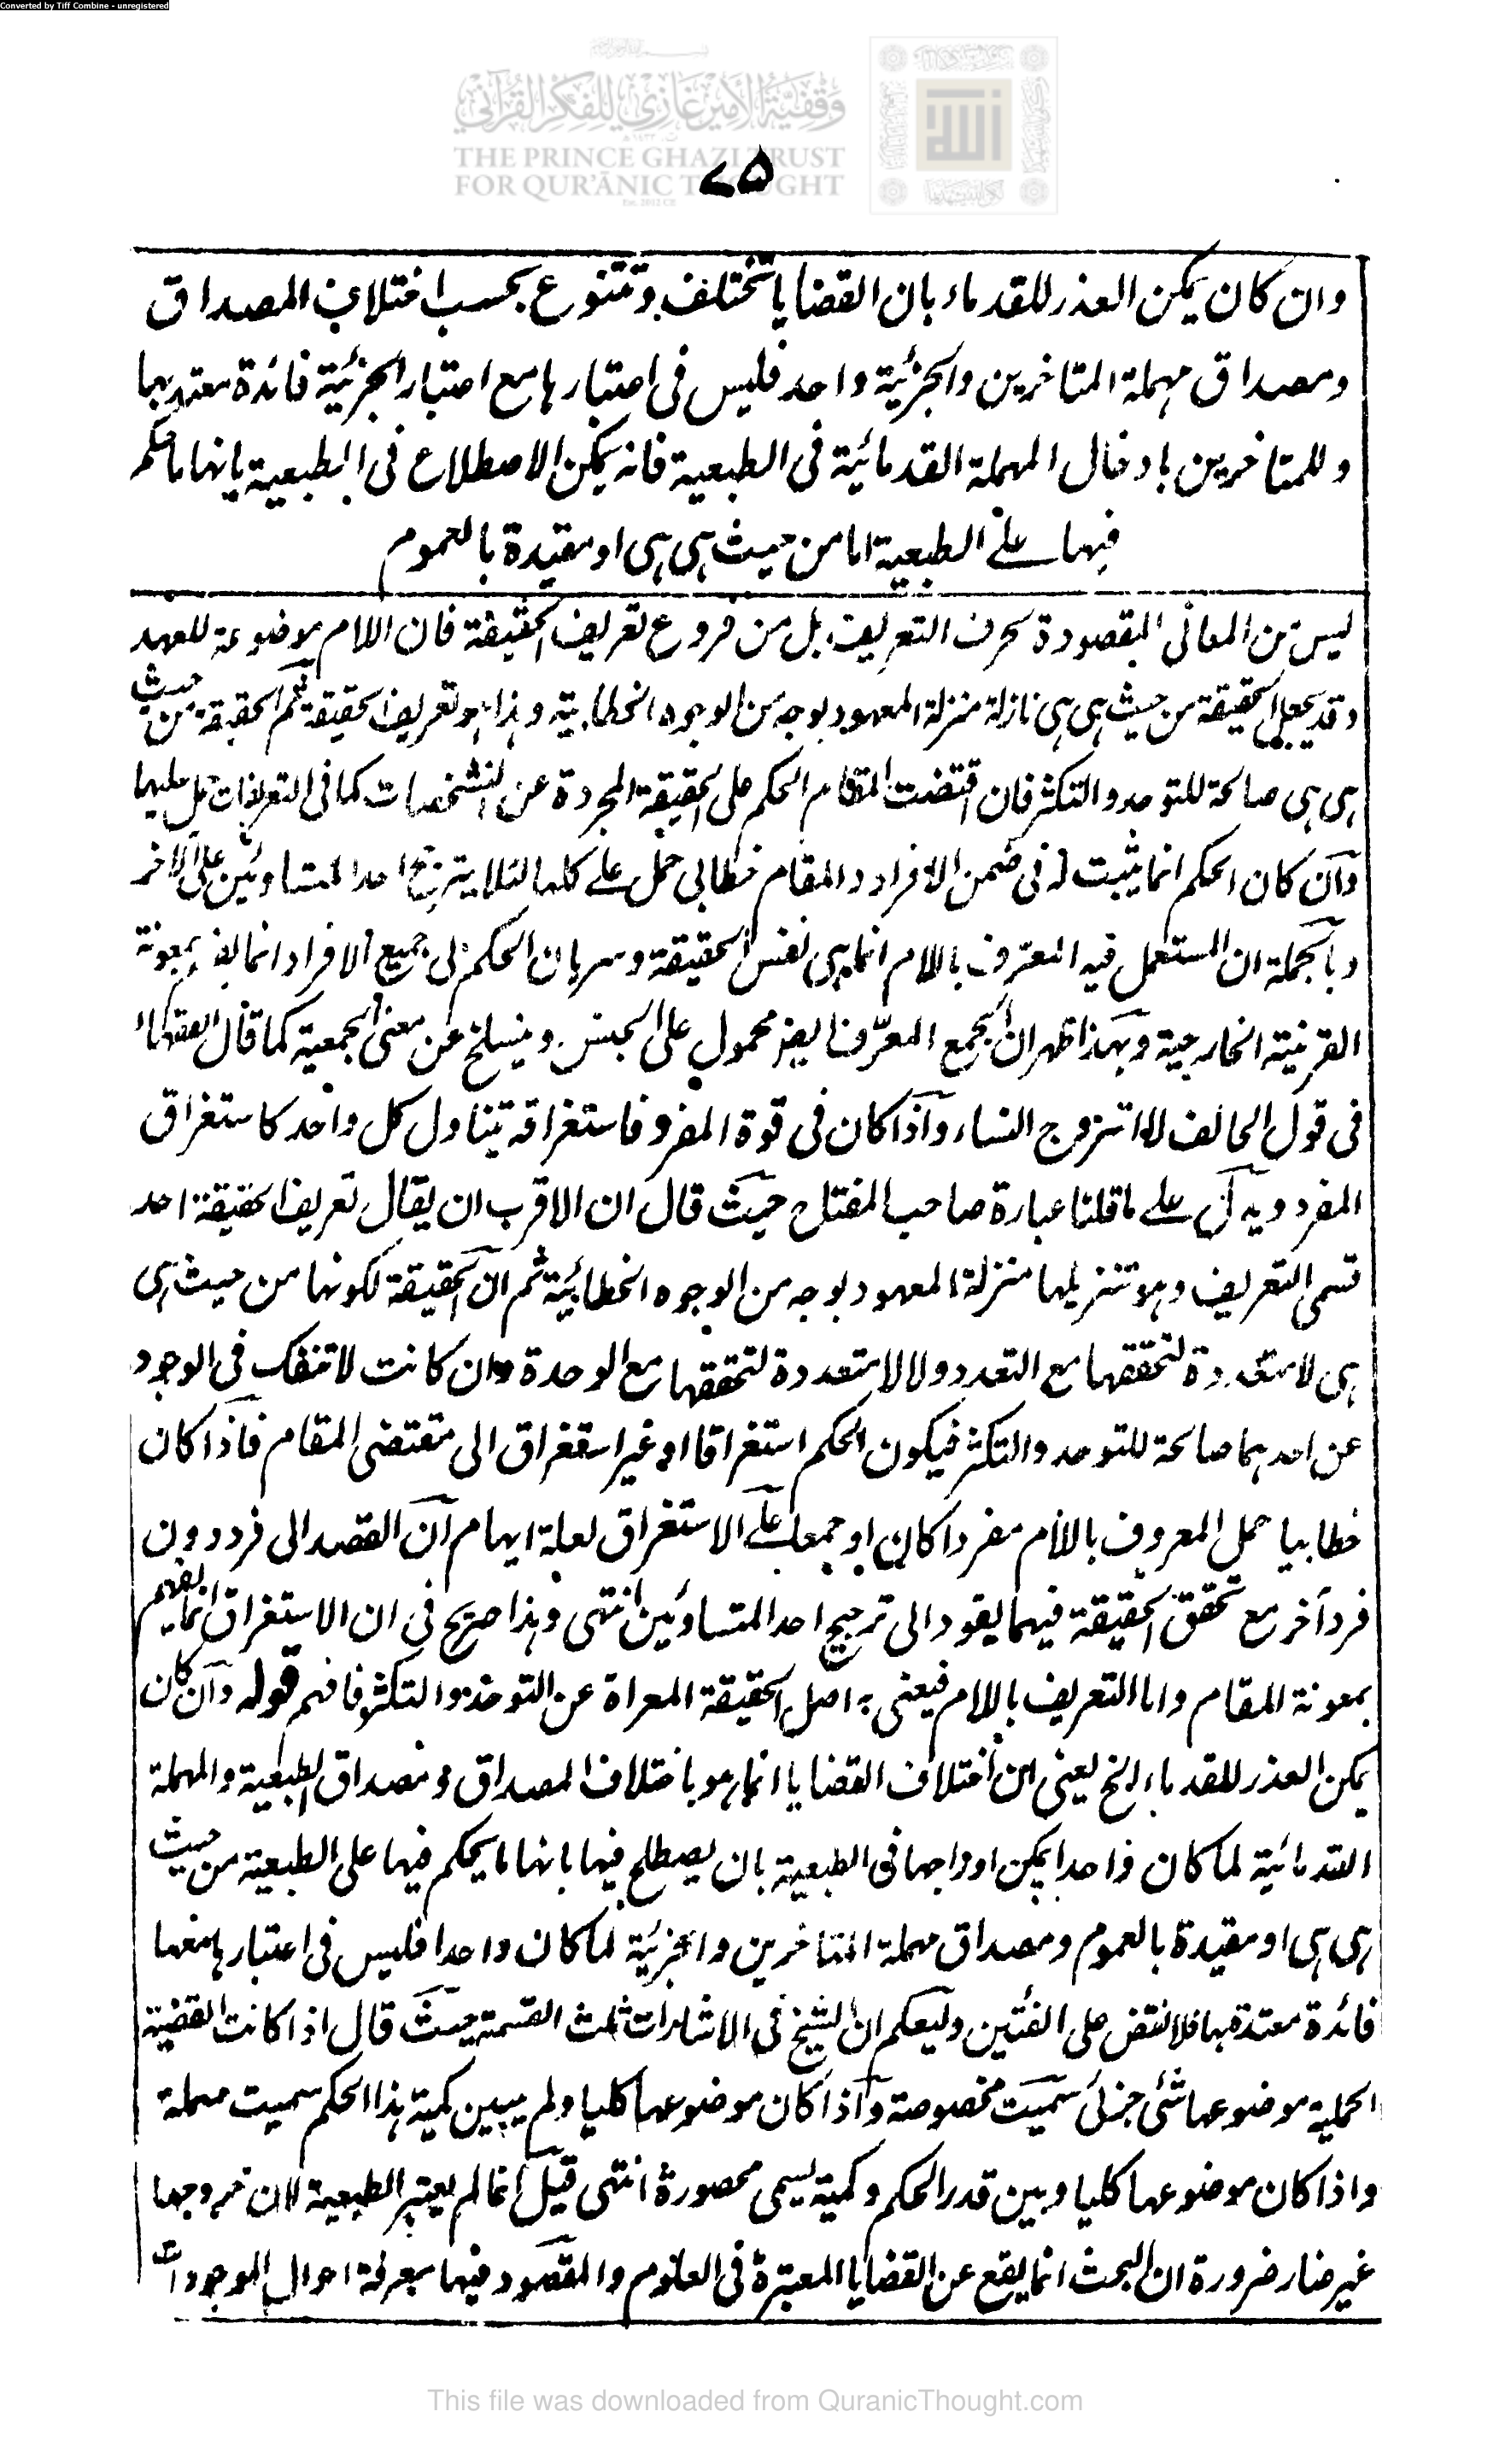 Converted by Tiff Combine - unregistered
وقفية الأمير غازي للفكر القرآني
THE PRINCE GHAZI TRUST
FOR QUR'ĀNIC THOUGHT
Est. 2012 CE
۷۵
وان كان يمكن العذر للقدماء بان القضايا تختلف وتتنوع بحسب اختلاف المصداق
ومصداق مهملة المتاخرين والجزئية واحد فليس فى اعتبارها مع اعتبار الجزئية فائدة معتد بها
وللمتاخرين بادخال المهملة القدمائية فى الطبعية فانه يمكن الاصطلاح فى الطبعية بانها ما حكم
فيها على الطبعية اما من حيث هى هى او مقيدة بالعموم
ليس من المعانى المقصودة بحرف التعريف بل من فروع تعريف الحقيقة فان اللام موضوعة للعهد
وقد يجعل الحقيقة من حيث هى هى نازلة منزلة المعهود بوجه من الوجوه الخطابية وهذا هو تعريف الحقيقة ثم الحقيقة من حيث
هى هى صالحة للتوحد والتكثر فان اقتضت المقام الحكم على الحقيقة المجردة عن التشخصات كما فى التعريفات حمل عليها
وان كان الحكم انما يثبت له فى ضمن الافراد والمقام خطابى حمل على كلها لئلا يترجح احد المتساوئين على الآخر
وبالجملة ان المستعمل فيه المعرّف باللام انما هى نفس الحقيقة وسريان الحكم الى جميع الافراد انما يفهم بمعونة
القرينة الخارجية وبهذا ظهر ان الجمع المعرّف ايضا محمول على الجنس وينسلخ عن معنى الجمعية كما قال الفقهاء
فى قول الحالف لا اتزوج النساء واذا كان فى قوة المفرد فاستغراقه يتناول كل واحد كاستغراق
المفرد ويدل على ما قلنا عبارة صاحب المفتاح حيث قال ان الاقرب ان يقال تعريف الحقيقة احد
قسمى التعريف وهو تنزيلها منزلة المعهود بوجه من الوجوه الخطابية ثم ان الحقيقة لكونها من حيث هى
هى لا متعددة لتحققها مع التعدد ولا لا متعددة لتحققها مع الوحدة وان كانت لا تنفك فى الوجود
عن احدهما صالحة للتوحد والتكثر فيكون الحكم استغراقا او غير استغراق الى مقتضى المقام فاذا كان
خطابيا حمل المعروف باللام مفردا كان او جمعا على الاستغراق لعلة ايهام ان القصد الى فرد دون
فرد آخر مع تحقق الحقيقة فيهما يقود الى ترجيح احد المتساوئين انتهى وهذا صريح فى ان الاستغراق انما يفهم
بمعونة المقام واما التعريف باللام فيعنى به اصل الحقيقة المعراة عن التوحد والتكثر فافهم قوله وان كان
يمكن العذر للقدماء الخ يعنى ان اختلاف القضايا انما هو باختلاف المصداق ومصداق الطبعية والمهملة
القدمائية لما كان واحدا يمكن ادراجها فى الطبعية بان يصطلح فيها بانها ما يحكم فيها على الطبعية من حيث
هى هى او مقيدة بالعموم ومصداق مهملة المتاخرين والجزئية لما كان واحدا فليس فى اعتبارها معها
فائدة معتدة بها فلا نقض على الفئتين وليعلم ان الشيخ فى الاشارات ثلث القسمة حيث قال اذا كانت القضية
الحملية موضوعها شئى جزئى سميت مخصوصة واذا كان موضوعها كليا ولم يبين كمية هذا الحكم سميت مهملة
واذا كان موضوعها كليا وبين قدر الحكم وكميته يسمى محصورة انتهى قيل انما لم يعتبر الطبعية لان خروجها
غير ضار ضرورة ان البحث انما يقع عن القضايا المعتبرة فى العلوم والمقصود فيها معرفة احوال الموجودات
This file was downloaded from QuranicThought.com